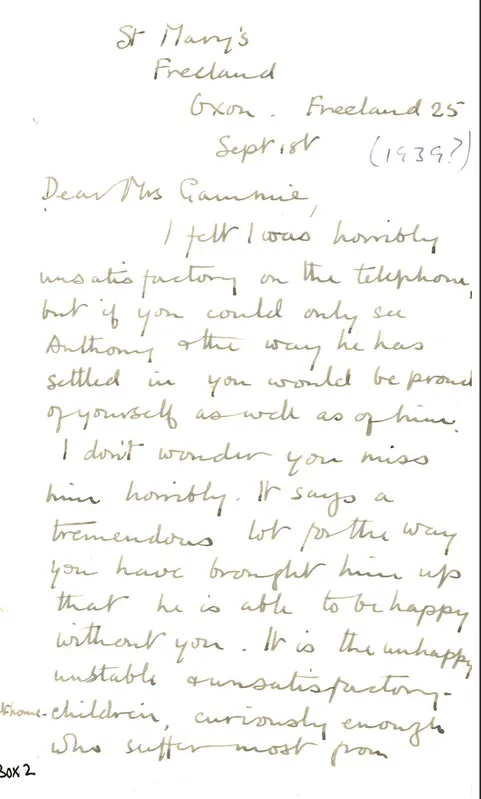 St Mary's
Freeland
Oxon. Freeland 25
Sept 1st (1939?)
Dear Mrs Gammie,
I felt I was horribly
unsatisfactory on the telephone,
but if you could only see
Anthony & the way he has
settled in you would be proud
of yourself as well as of him.
I don't wonder you miss
him horribly. It says a
tremendous lot for the way
you have brought him up
that he is able to be happy
without you. It is the unhappy
unstable & unsatisfactory-
home-children, curiously enough
who suffer most from
Box 2